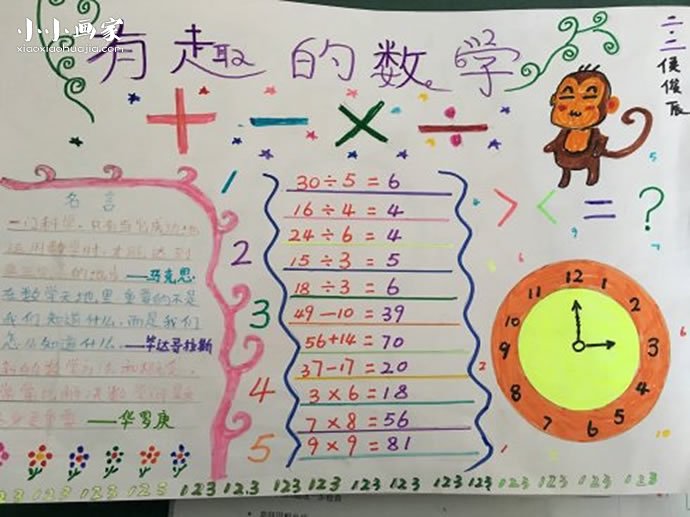 小小画家
xiaoxiaohuajia.com
有趣的数学
二.二
侯俊辰
+ − × ÷
名言
一门科学，只有当它成功地
运用数学时，才能达到
——马克思
在数学天地里，重要的不是
我们知道什么，而是我们
怎么知道什么。——毕达哥拉斯
——华罗庚
1
2
3
4
5
30÷5=6
16÷4=4
24÷6=4
15÷3=5
18÷3=6
49-10=39
56+14=70
37-17=20
3×6=18
7×8=56
9×9=81
> < = ?
12
1
2
3
4
5
6
7
8
9
10
11
123 123 123 123 12.3 123 123 123 123 123 123 123 123 123 123